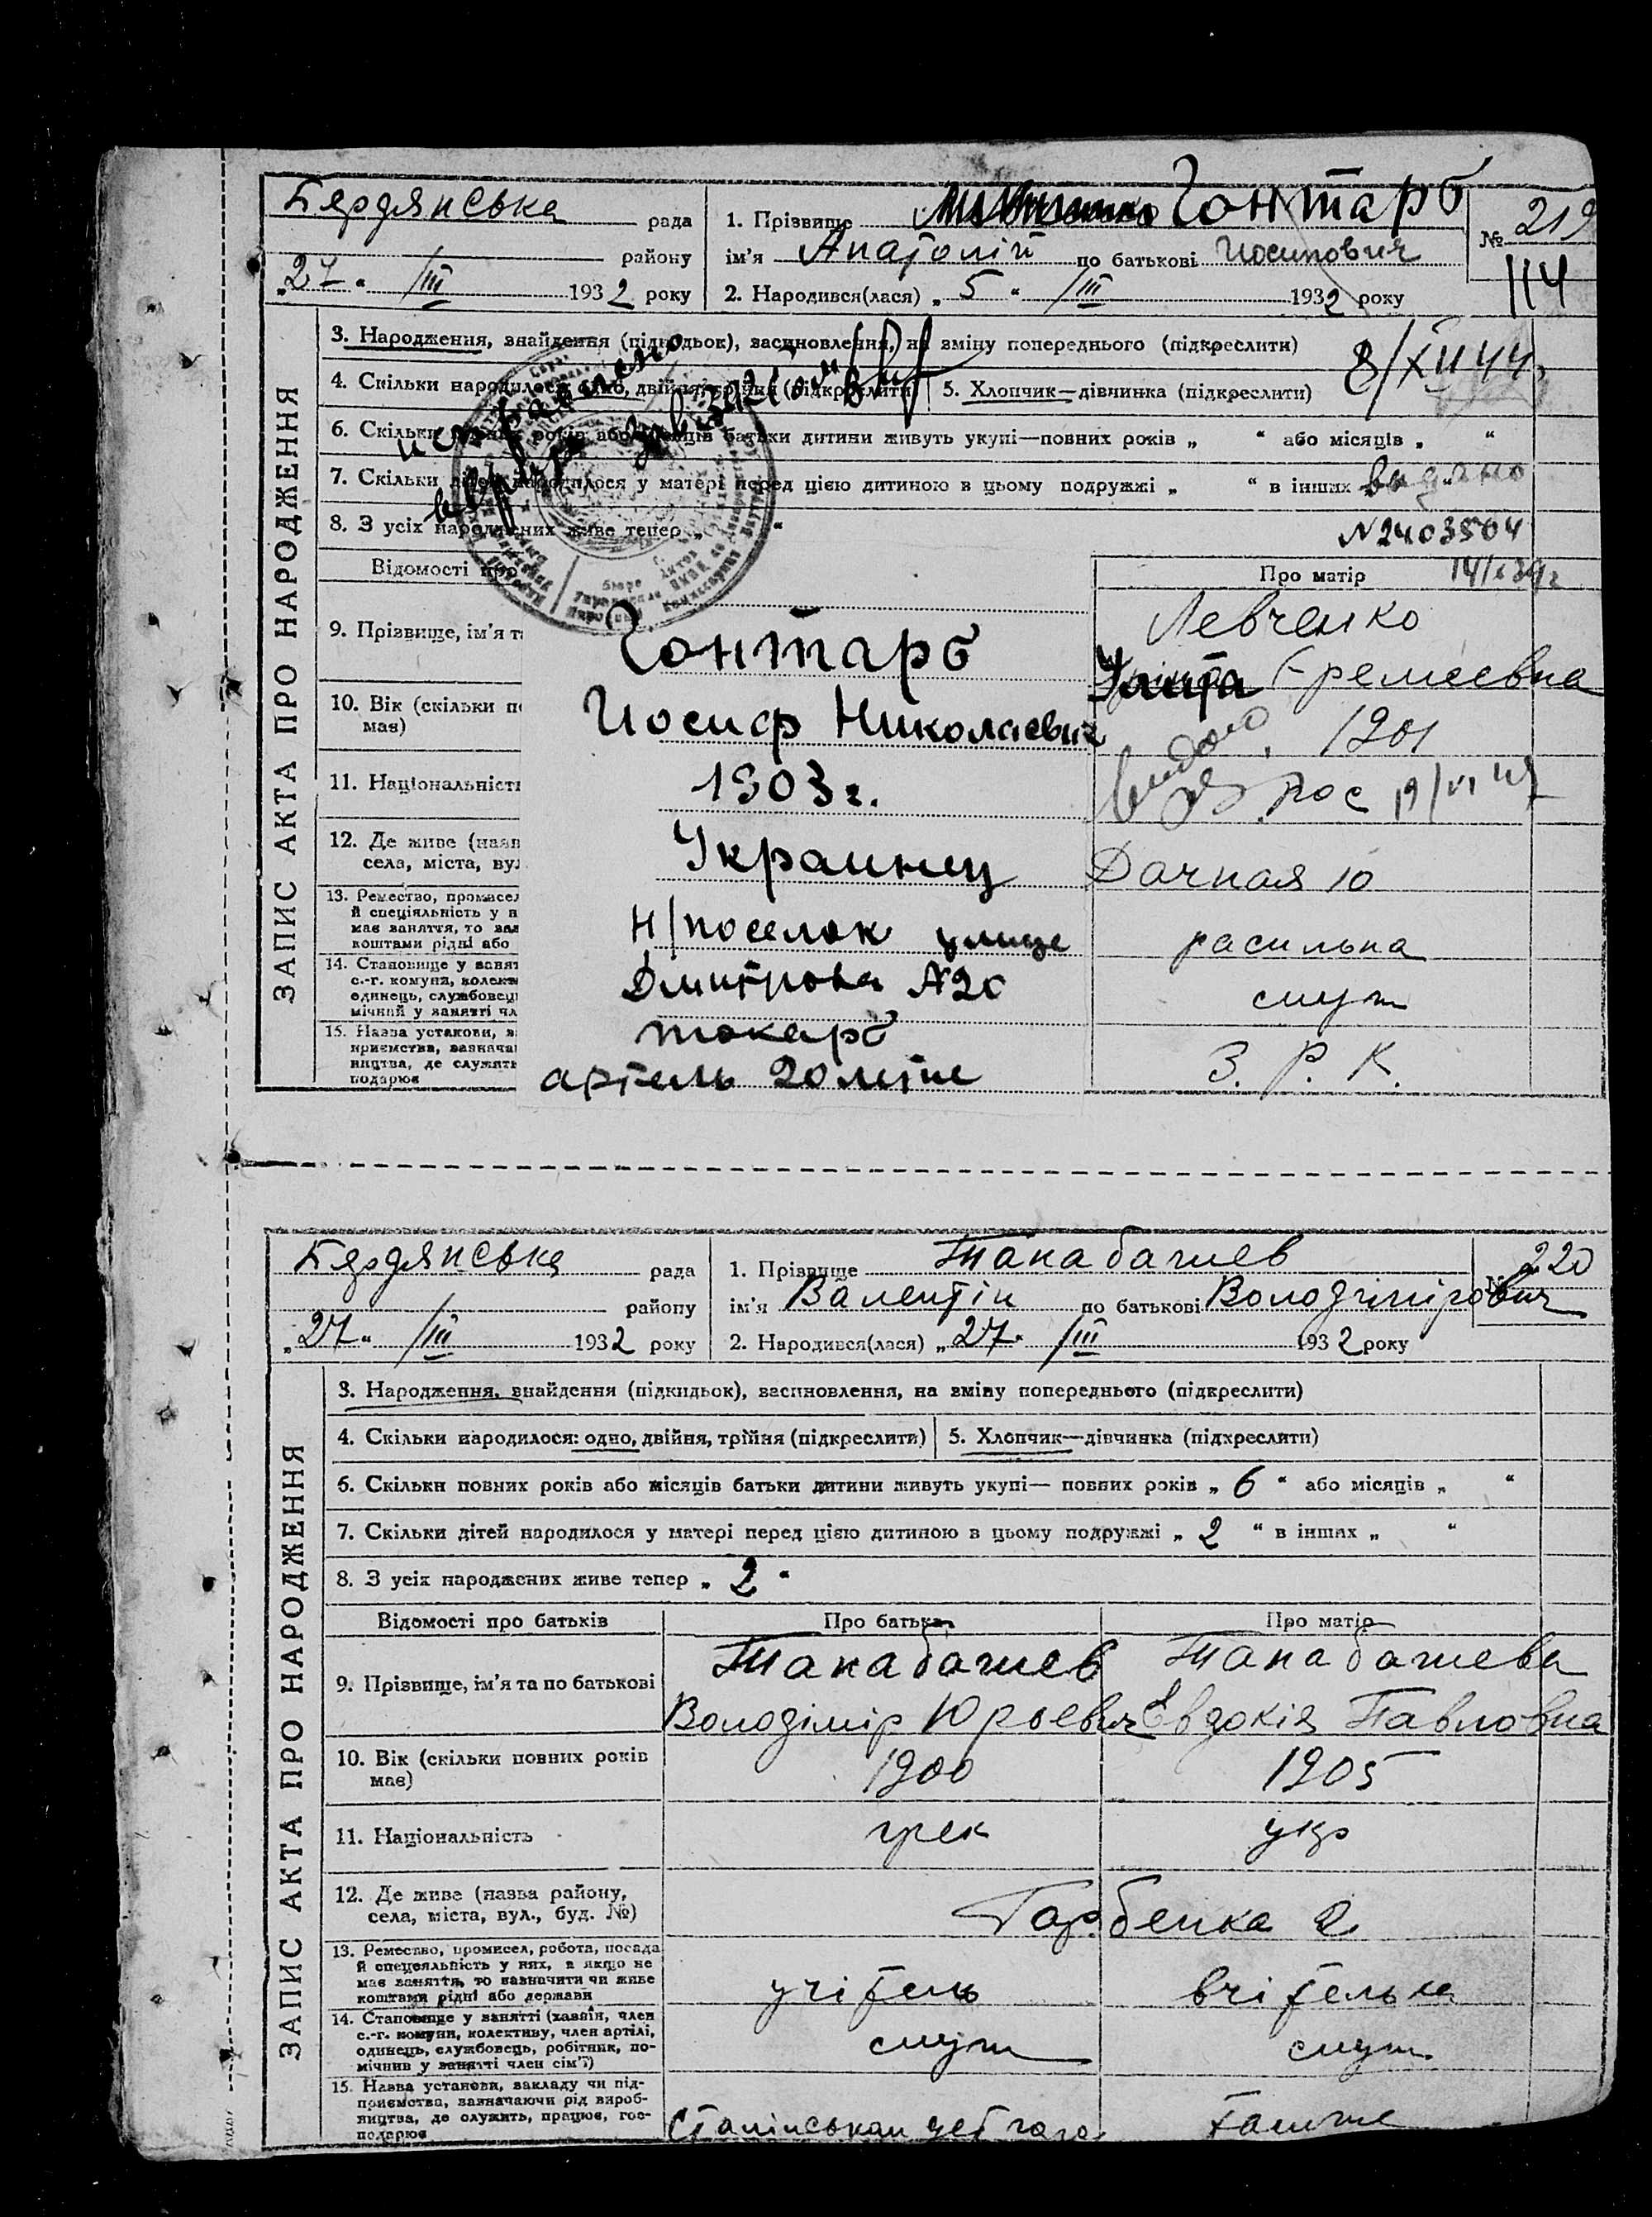 Бердянська рада
району
„27“ /III 1932 року
1. Прізвище Гонтарь
ім'я Анатолій по батькові Иосипович
2. Народився(лася) „5“ /III 1932 року
№ 219
114
ЗАПИС АКТА ПРО НАРОДЖЕННЯ
3. Народження, знайдення (підкидьок), засиновлення, на зміну попереднього (підкреслити)
8/XII 44
4. Скільки народилося: одно, двійня, трійня (підкреслити) 5. Хлопчик—дівчинка (підкреслити)
исправлено
6. Скільки повних років або місяців батьки дитини живуть укупі—повних років „ “ або місяців „ “
7. Скільки дітей народилося у матері перед цією дитиною в цьому подружжі „ “ в інших „ “
видано
8. З усіх народжених живе тепер „ “
№2403504
Відомості про
Про матір
9. Прізвище, ім'я т
Гонтарь
Левченко
Иосиф Николаевич
Еремеевна
10. Вік (скільки по
має)
1903 г.
1901
11. Національність
Украинец
рос 19/VI
12. Де живе (назв
села, міста, вул
Н/поселок улице
Дмитрова №20
Дачная 10
13. Ремество, промисел
й спеціяльність у н
має заняття, то заз
коштами рідні або
токарь
14. Становище у занят
с.-г. комуни, колект
одинець, службовець
мічний у занятті чл
служ
15. Назва установи, з
приємства, зазнача
ництва, де служить
подарює
артель 20 летие
З. Р. К.
Бердянська рада
району
„27“ /III 1932 року
1. Прізвище Танабачиев
ім'я Валентін по батькові Володімірович
2. Народився(лася) „27“ /III 1932 року
№ 220
ЗАПИС АКТА ПРО НАРОДЖЕННЯ
3. Народження, знайдення (підкидьок), засиновлення, на зміну попереднього (підкреслити)
4. Скільки народилося: одно, двійня, трійня (підкреслити) 5. Хлопчик—дівчинка (підкреслити)
6. Скільки повних років або місяців батьки дитини живуть укупі— повних років „ 6 “ або місяців „ “
7. Скільки дітей народилося у матері перед цією дитиною в цьому подружжі „ 2 “ в інших „ “
8. З усіх народжених живе тепер „ 2 “
Відомості про батьків
Про батька
Про матір
9. Прізвище, ім'я та по батькові
Танабачиев
Володімір Юрьевич
Танабачиева
Евдокія Павловна
10. Вік (скільки повних років
має)
1900
1905
11. Національність
грек
укр
12. Де живе (назва району,
села, міста, вул., буд. №)
13. Ремество, промисел, робота, посада
й спеціяльність у них, а якщо не
має заняття, то зазначити чи живе
коштами рідні або держави
учітель
вчітелька
14. Становище у занятті (хазяїн, член
с.-г. комуни, колективу, член артілі,
одинець, службовець, робітник, по-
мічний у занятті член сім'ї)
служ
служ
15. Назва установи, закладу чи під-
приємства, зазначаючи рід вироб-
ництва, де служить, працює, гос-
подарює